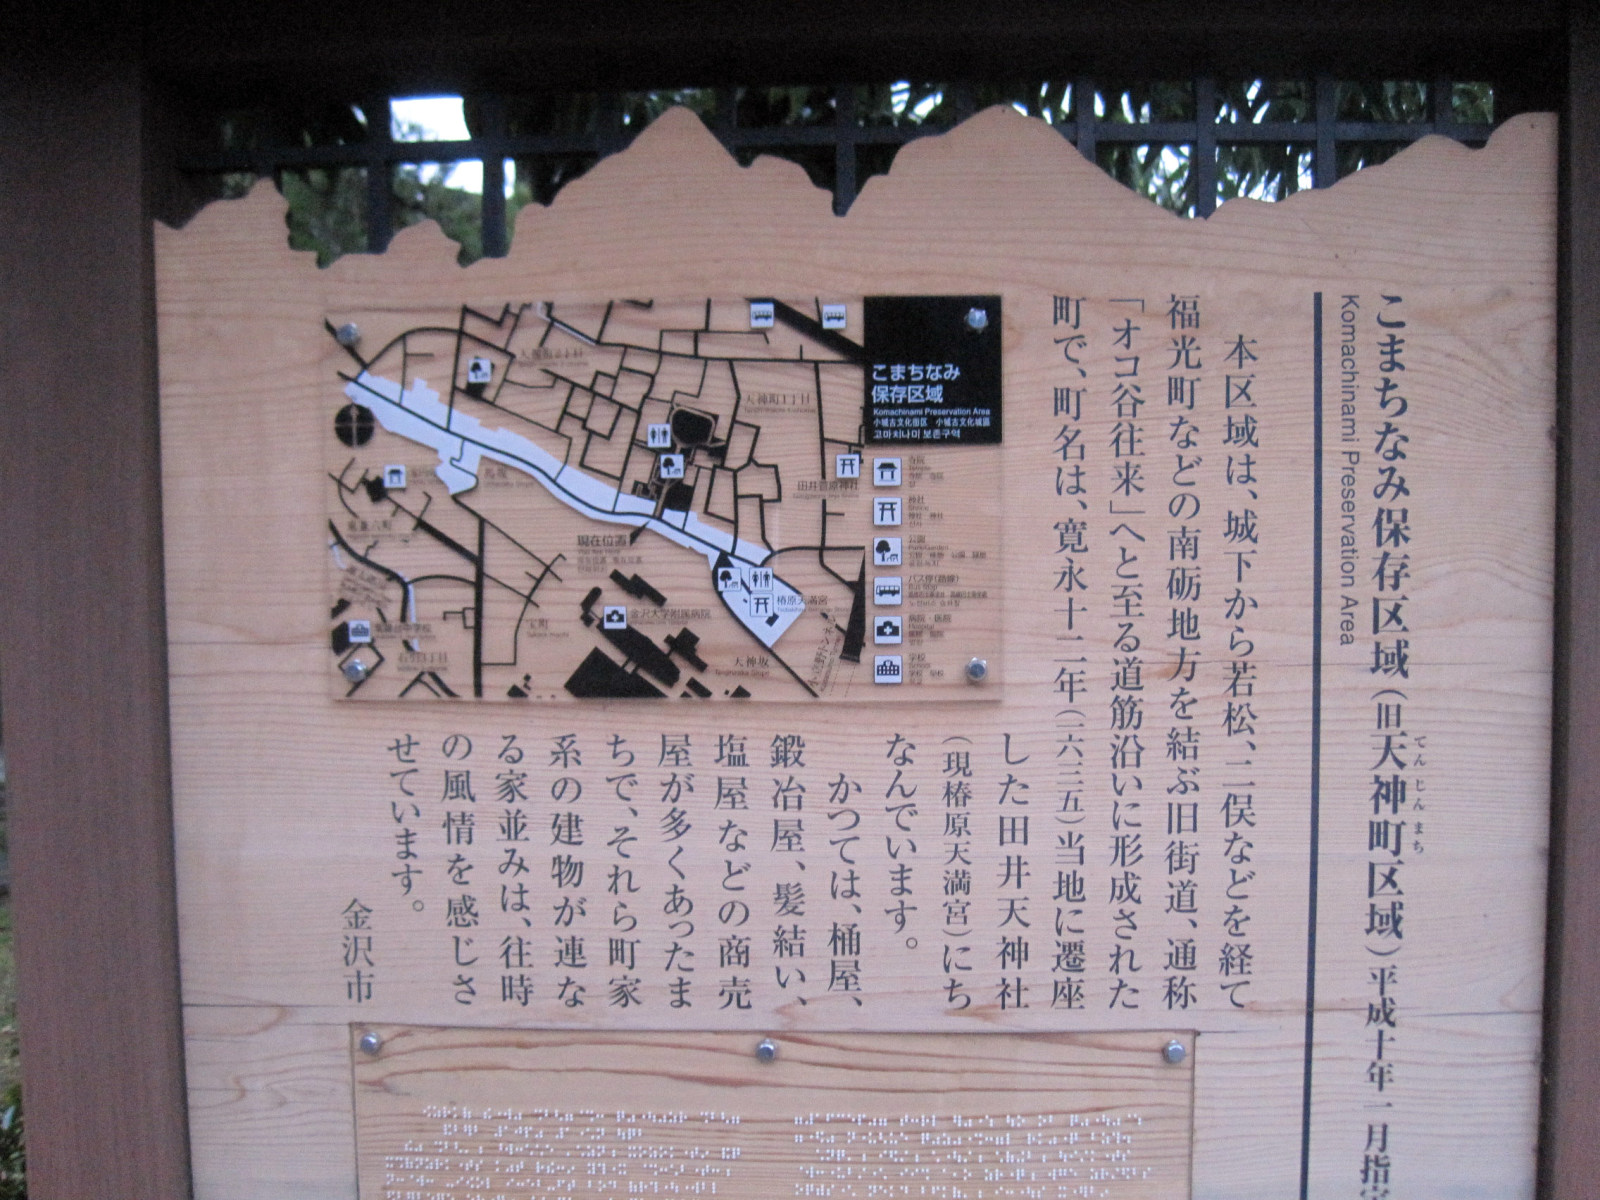 こまちなみ保存区域(旧天神町区域)平成十年一月指定
てんじんまち
Komachinami Preservation Area
本区域は、城下から若松、二俣などを経て
福光町などの南砺地方を結ぶ旧街道、通称
「オコ谷往来」へと至る道筋沿いに形成された
町で、町名は、寛永十二年(一六三五)当地に遷座
した田井天神社
(現椿原天満宮)にち
なんでいます。
かつては、桶屋、
鍛冶屋、髪結い、
塩屋などの商売
屋が多くあったま
ちで、それら町家
系の建物が連な
る家並みは、往時
の風情を感じさ
せています。
金沢市
こまちなみ
保存区域
Komachinami Preservation Area
小城古文化街区 小城古文化城區
고마치나미 보존구역
寺院
神社
公園
バス停(路線)
病院・医院
学校
天神町2丁目
天神町1丁目
田井菅原神社
馬坂
現在位置
椿原天満宮
金沢大学附属病院
天神坂
宝町
石引3丁目